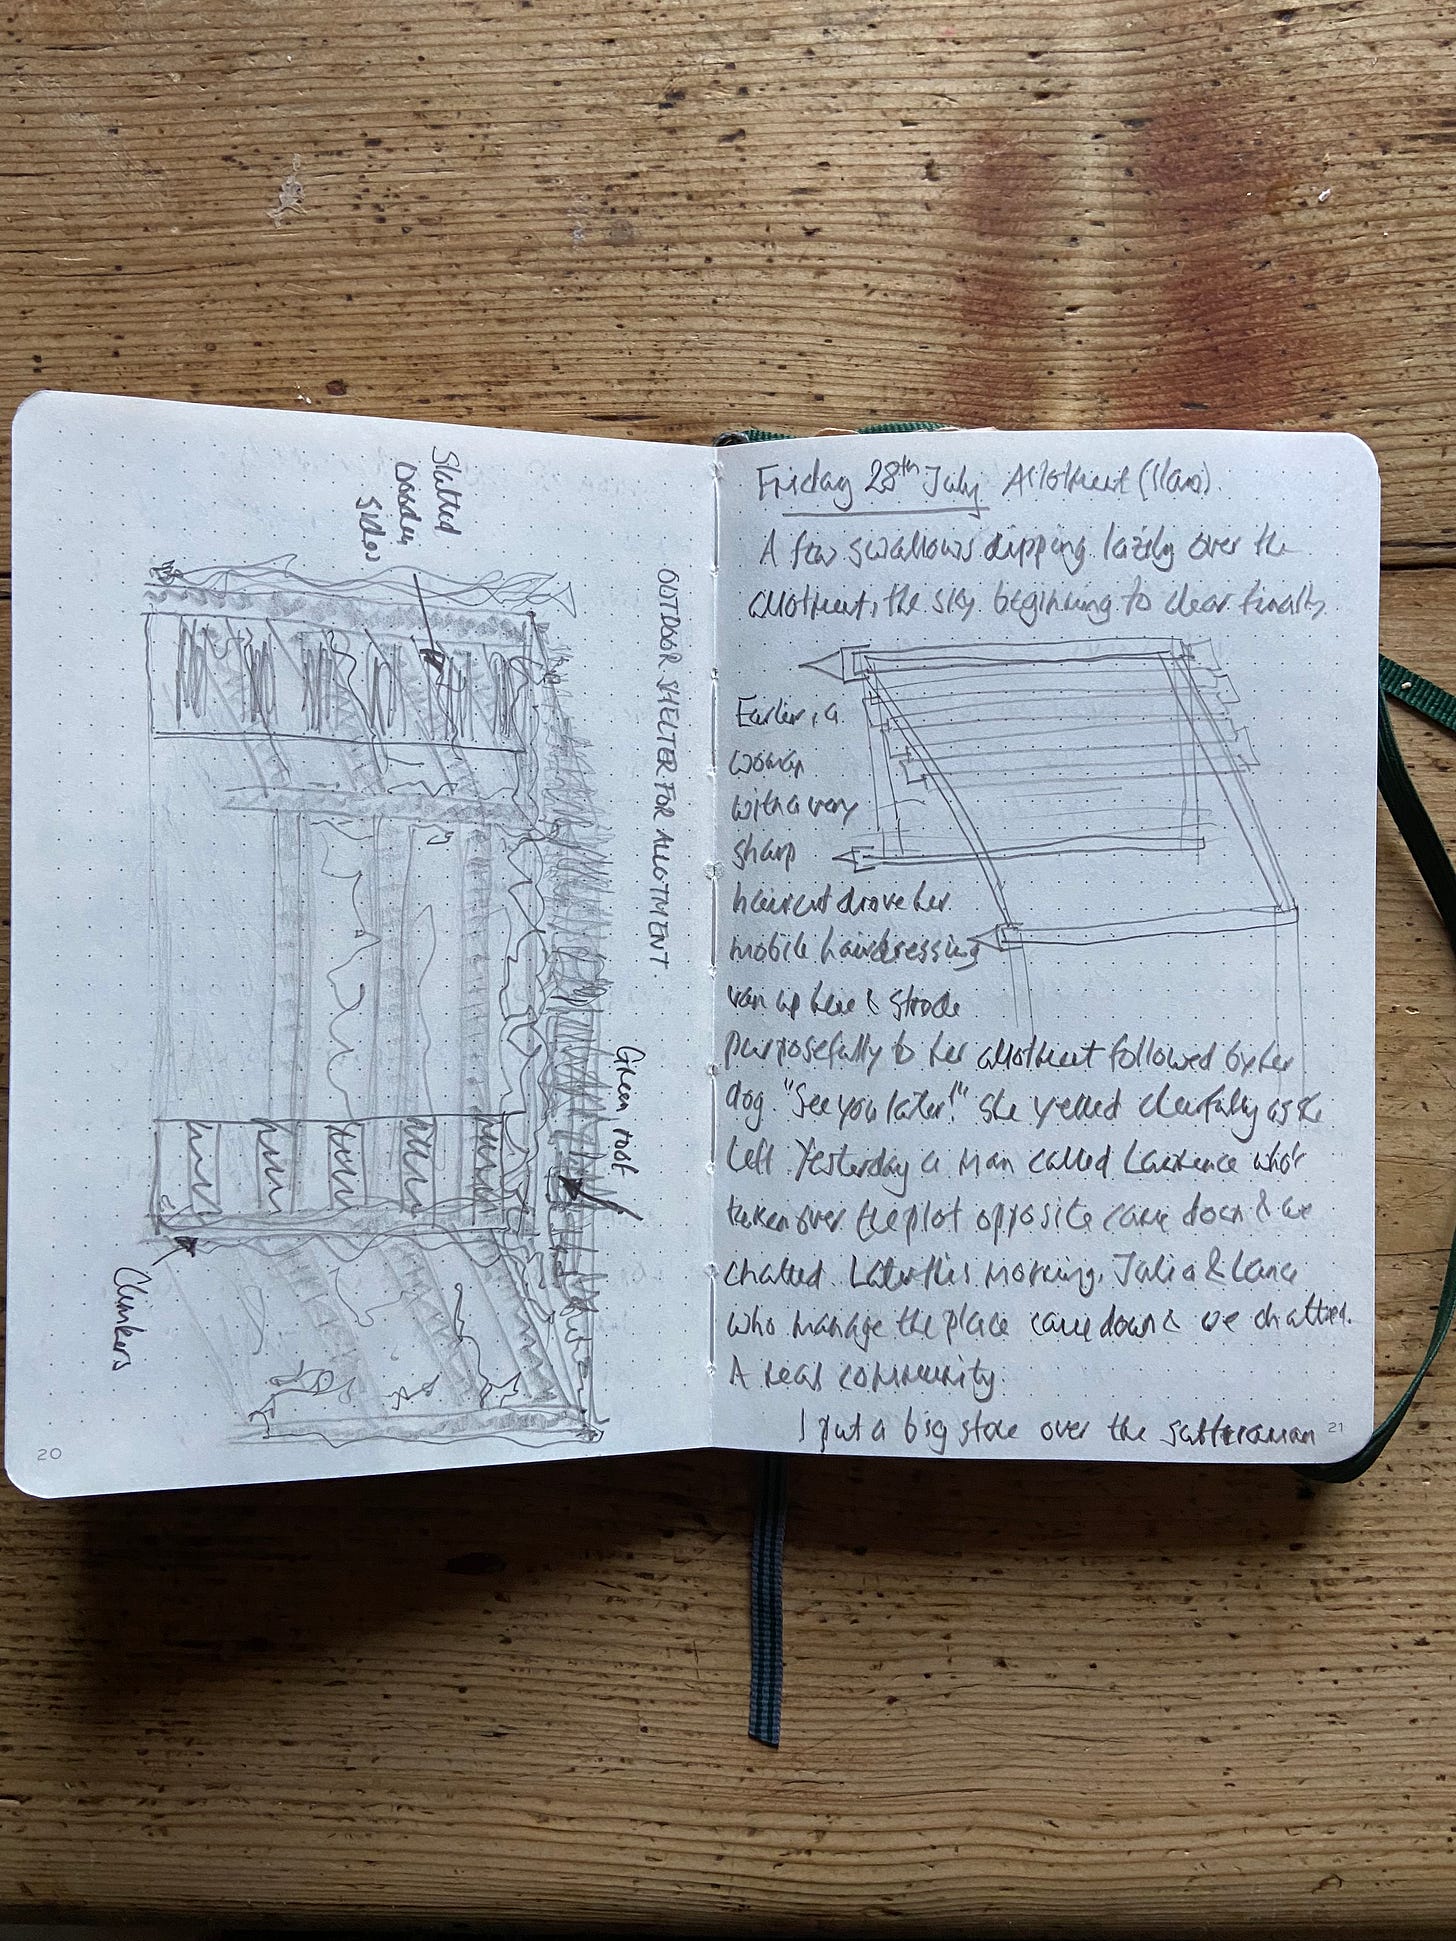 OUTDOOR SHELTER FOR ALLOTMENT.
Slatted
Wooden
Sides
Green roof
Climbers
20
Friday 28th July Allotment (11am).
A few swallows dipping lazily over the
allotment, the sky beginning to clear finally.
Earlier, a
woman
with a very
sharp
haircut drove her
mobile hairdressing
van up here & strode
purposefully to her allotment followed by her
dog. "See you later!" she yelled cheerfully as she
left. Yesterday a man called Lawrence who's
taken over the plot opposite came down & we
chatted. Later this morning, Julia & Lana
who manage the place came down & we chatted.
A real community.
I put a big stone over the
21